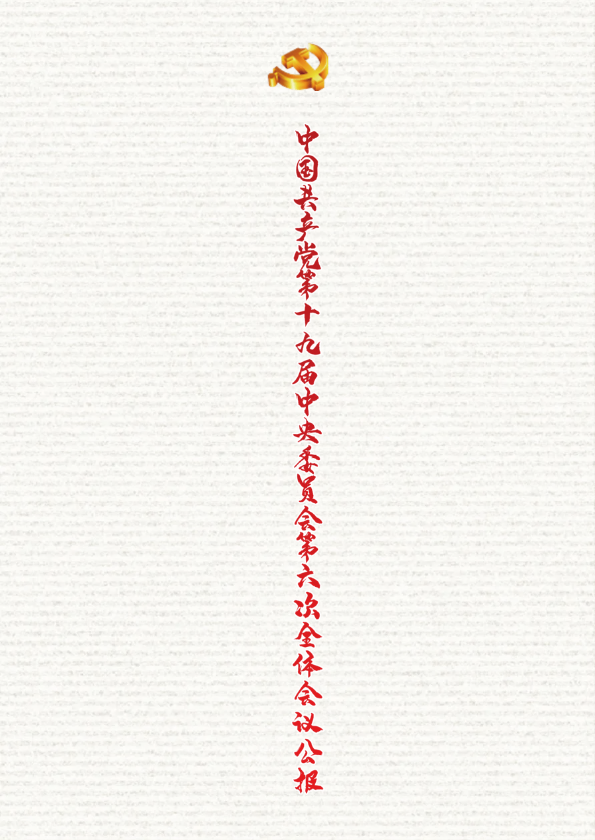 中国共产党第十九届中央委员会第六次全体会议公报